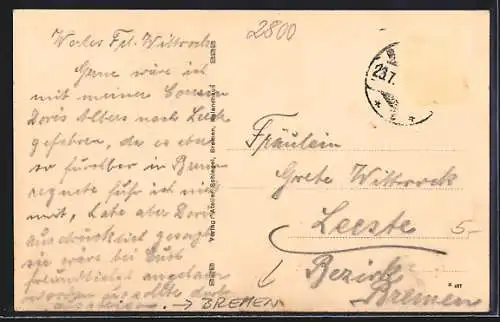 2800
Wertes Frl. Wittrock
Gerne wäre ich
mit meiner Cousine
Doris Albers nach Leeste
gefahren, da es aber
so furchtbar in Bremen
regnete fuhr ich nicht
mit, habe aber Doris
ausdrücklich gesagt
sie wäre bei Euch
freundlichst eingeladen
worden u. sollte doch
. → BREMEN
Verlag "Atelier Schlegel, Bremen,
23.7.
Fräulein
Grete Wittrock
Leeste
5-
Bezirk
Bremen